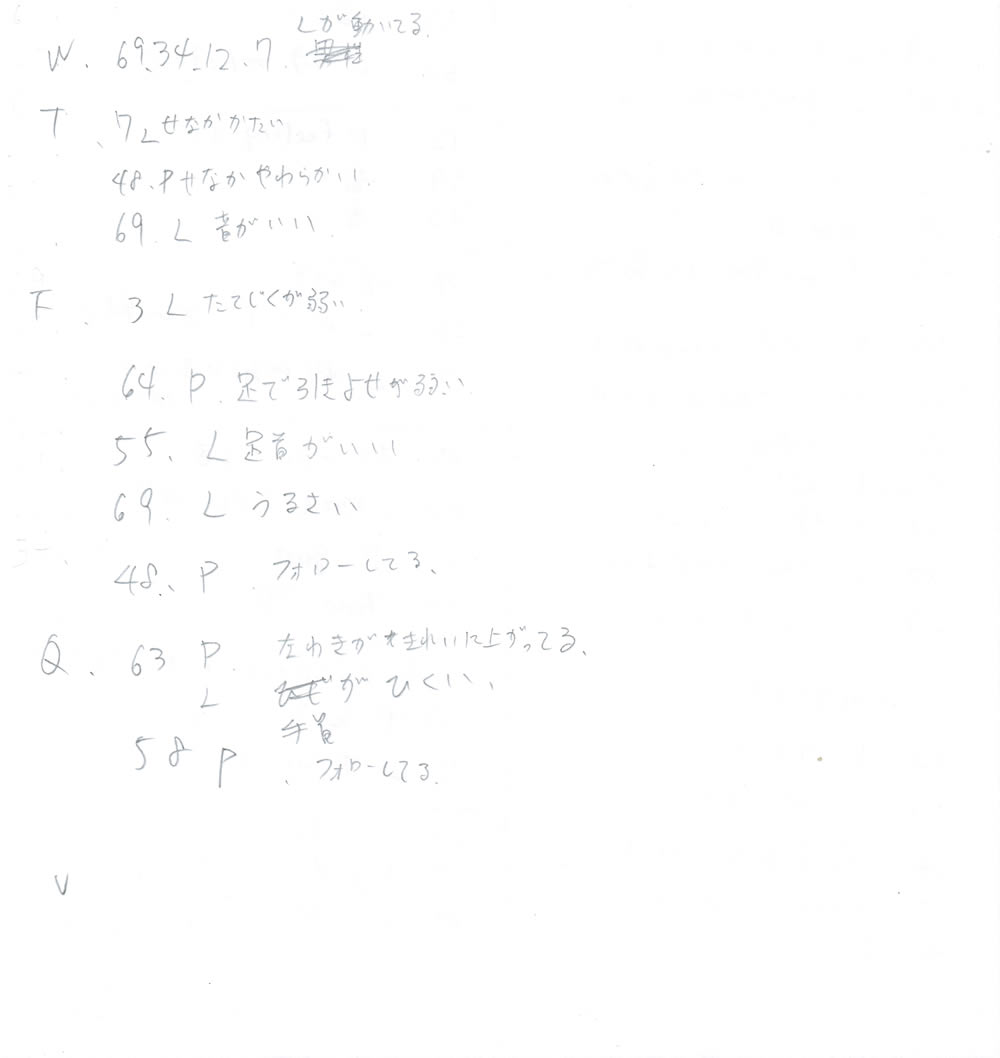 Lが動いてる.
W. 69.34.12.7.
T 、7L せなかかたい
48、Pせなかやわらかいい.
69. L 音がいいい.
F 、3 L たてじくが弱い
64、P. 足で引きよせが弱い.
55、L 足首がいいい
69. L うるさい
48、P. フォローしてる、
Q、63 P. 左わきがきれいに上がってる、
L がひくい、
手首
58 P 、フォローしてる.
V